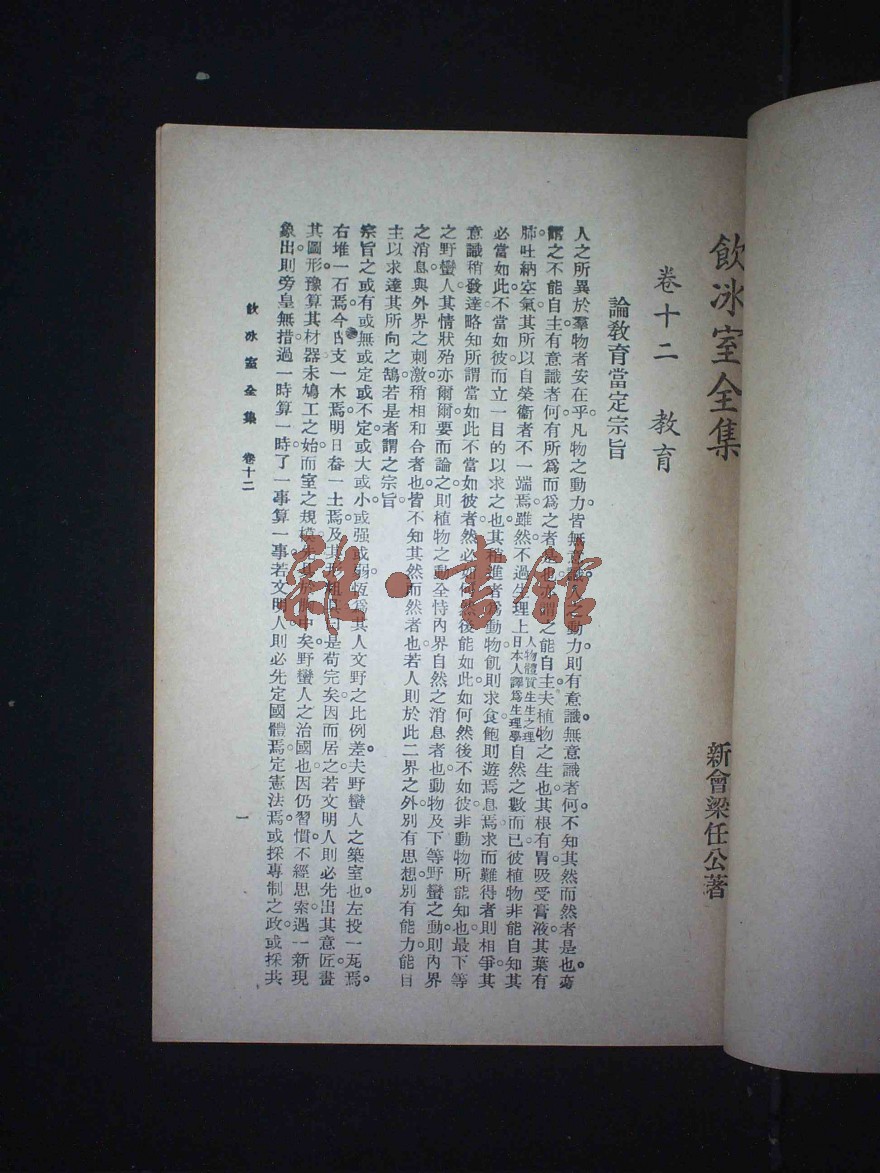 飲冰室全集
新會梁任公著
卷十二 教育
論教育當定宗旨
人之所異於羣物者安在乎凡物之動力皆無意識人之動力則有意識無意識者何不知其然而然者是也亦
謂之不能自主有意識者何有所爲而爲之者是也亦謂之能自主夫植物之生也其根有胃吸受膏液其葉有
肺吐納空氣其所以自榮衛者不一端焉雖然不過生理上人物體質生生之理日本人譯爲生理學自然之數而已彼植物非能自知其
必當如此不當如彼而立一目的以求之也其稍進者爲動物飢則求食飽則遊焉息焉求而難得者則相爭其
意識稍發達略知所謂當如此不當如彼者然必如何然後能如此如何然後不如彼非動物所能知也最下等
之野蠻人其情狀殆亦爾爾要而論之則植物之動全恃內界自然之消息者也動物及下等野蠻之動則內界
之消息與外界之刺激稍相和合者也皆不知其然而然者也若人則於此二界之外別有思想別有能力能自
主以求達其所向之鵠若是者謂之宗旨
宗旨之或有或無或定或不定或大或小或强或弱恆爲其人文野之比例差夫野蠻人之築室也左投一瓦焉
右堆一石焉今日支一木焉明日畚一土焉及其形粗具曰是苟完矣因而居之若文明人則必先出其意匠畫
其圖形豫算其材器未鳩工之始而室之規模先具於胸中矣野蠻人之治國也因仍習慣不經思索遇一新現
象出則旁皇無措過一時算一時了一事算一事若文明人則必先定國體焉定憲法焉或採專制之政或採共
飲冰室全集 卷十二
一
雜·書館